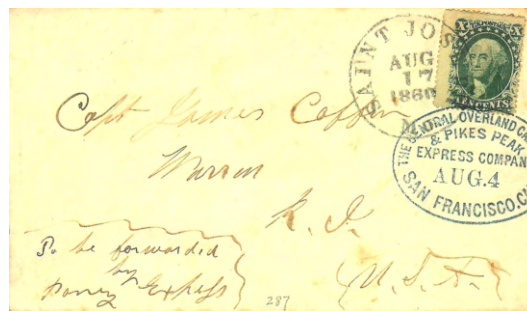 SAINT JOS
AUG
17
1860
TEN CENTS
THE CENTRAL OVERLAND C
& PIKES PEAK
EXPRESS COMPAN
AUG.4
SAN FRANCISCO.C
Capt James Coffin
Warren
R. I.
U. S. A.
To be forwarded
by
Poney Express
287